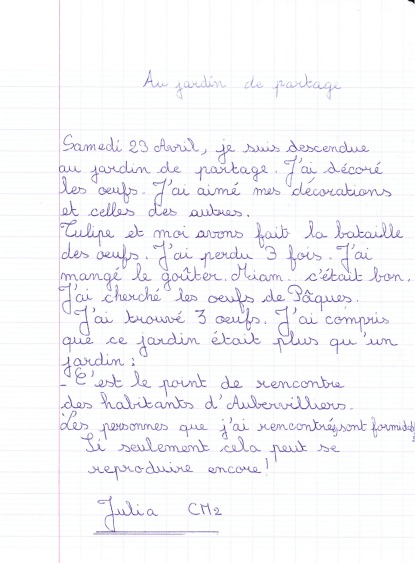 Au jardin de partage
Samedi 23 Avril, je suis descendue
au jardin de partage. J'ai décoré
les oeufs. J'ai aimé mes décorations
et celles des autres.
Tulipe et moi avons fait la bataille
des oeufs. J'ai perdu 3 fois. J'ai
mangé le goûter. Miam c'était bon.
J'ai cherché les oeufs de Pâques.
J'ai trouvé 3 oeufs. J'ai compris
que ce jardin était plus qu'un
jardin :
- C'est le point de rencontre
des habitants d'Aubervilliers.
Les personnes que j'ai rencontrées sont
Si seulement cela peut se
reproduire encore !
Julia CM2